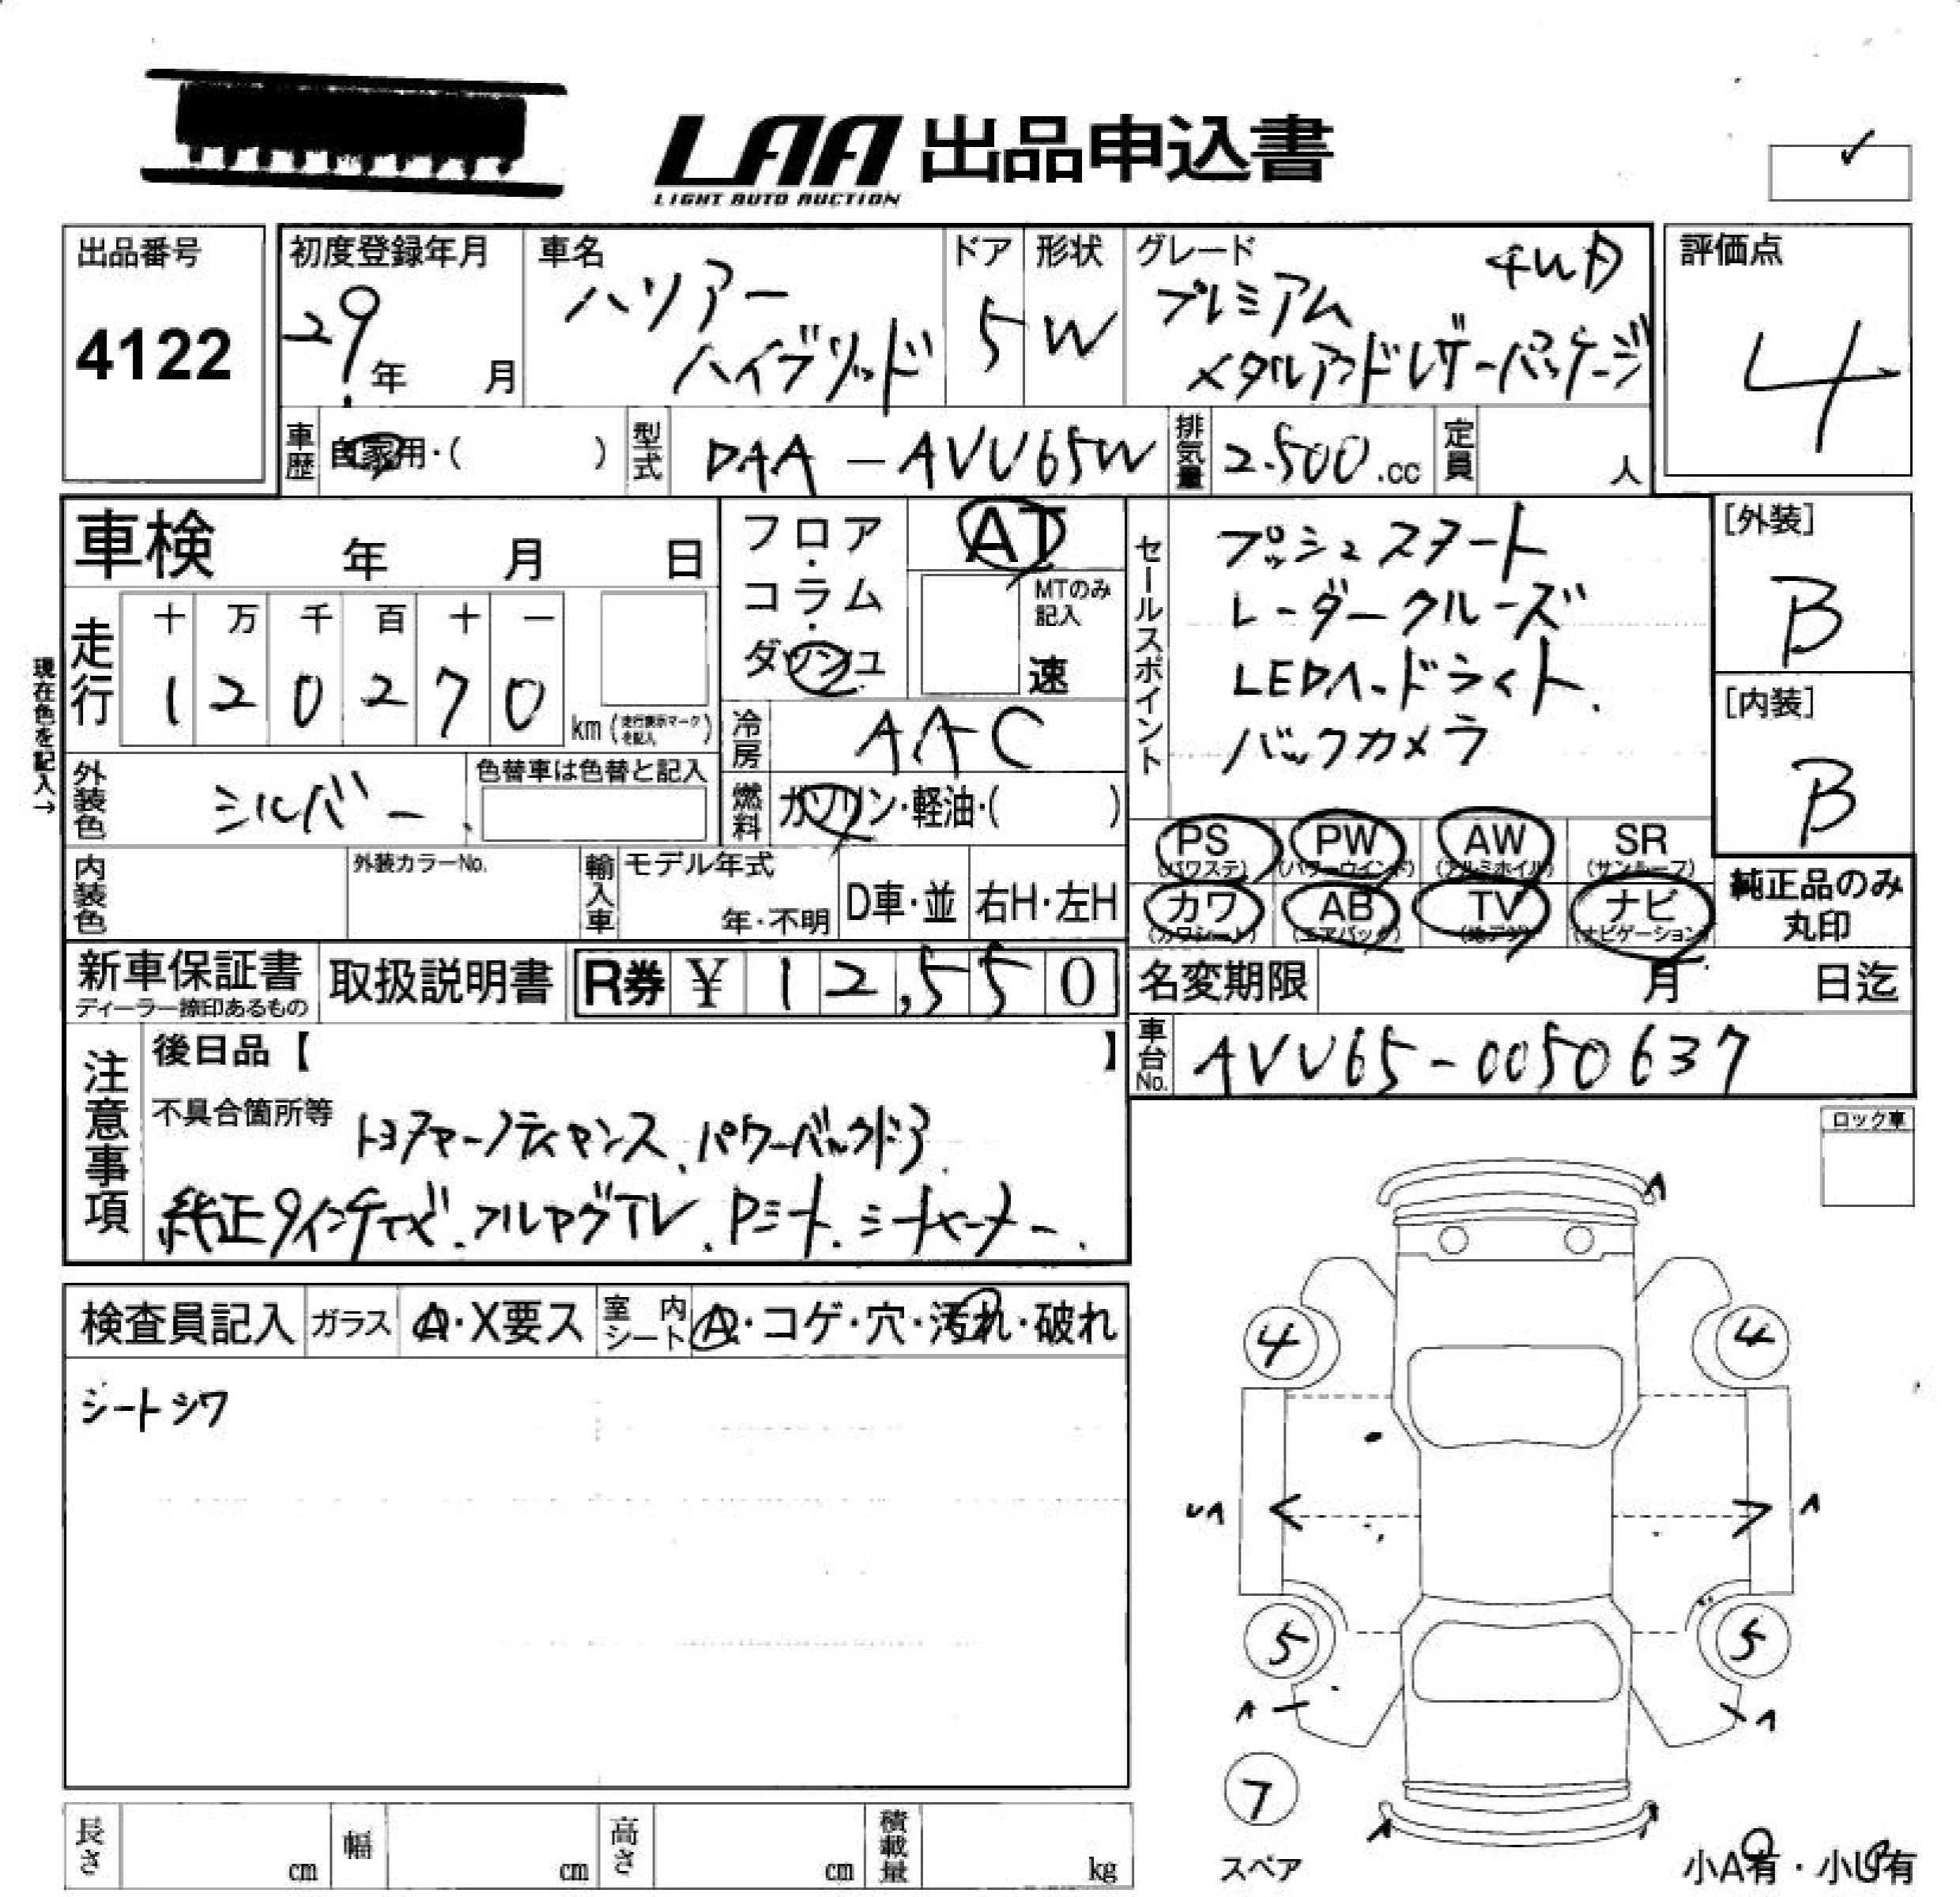 LAA 出品申込書
LIGHT AUTO AUCTION
出品番号
4122
初度登録年月
29年 月
車名
ハリアー
ハイブリッド
ドア
5
形状
W
グレード
4WD
プレミアム
メタルアンドレザーパッケージ
評価点
4
車歴 自家用・( )
型式 DAA-AVU65W
排気量 2.500.cc
定員 人
車検 年 月 日
フロア・コラム・ダッシュ
AT
MTのみ記入
速
セールスポイント
プッシュスタート
レーダークルーズ
LEDヘッドライト.
バックカメラ
[外装]
B
[内装]
B
現在色を記入→
走行
十 万 千 百 十 一
1 2 0 2 7 0 km (走行表示マークを記入)
冷房 AAC
外装色 シルバー
色替車は色替と記入
燃料 ガソリン・軽油・( )
PS (パワステ) PW (パワーウインド) AW (アルミホイル) SR (サンルーフ)
カワ (カワシート) AB (エアバッグ) TV (地デジ) ナビ (ナビゲーション)
純正品のみ丸印
内装色
外装カラーNo.
輸入車
モデル年式
年・不明
D車・並
右H・左H
新車保証書
ディーラー捺印あるもの
取扱説明書
R券 ¥ 12,550
名変期限 月 日迄
車台No. AVU65-0050637
注意事項
後日品【 】
不具合箇所等
パワーバックドア
純正9インチナビ.フルセグTV.Pシート.シートヒーター.
ロック車
検査員記入 ガラス A・X要ス 室内シート A・コゲ・穴・汚れ・破れ
シートシワ
A
4 4
UA A
5 5
A A
7
スペア
小A有・小U有
長さ cm 幅 cm 高さ cm 積載量 kg